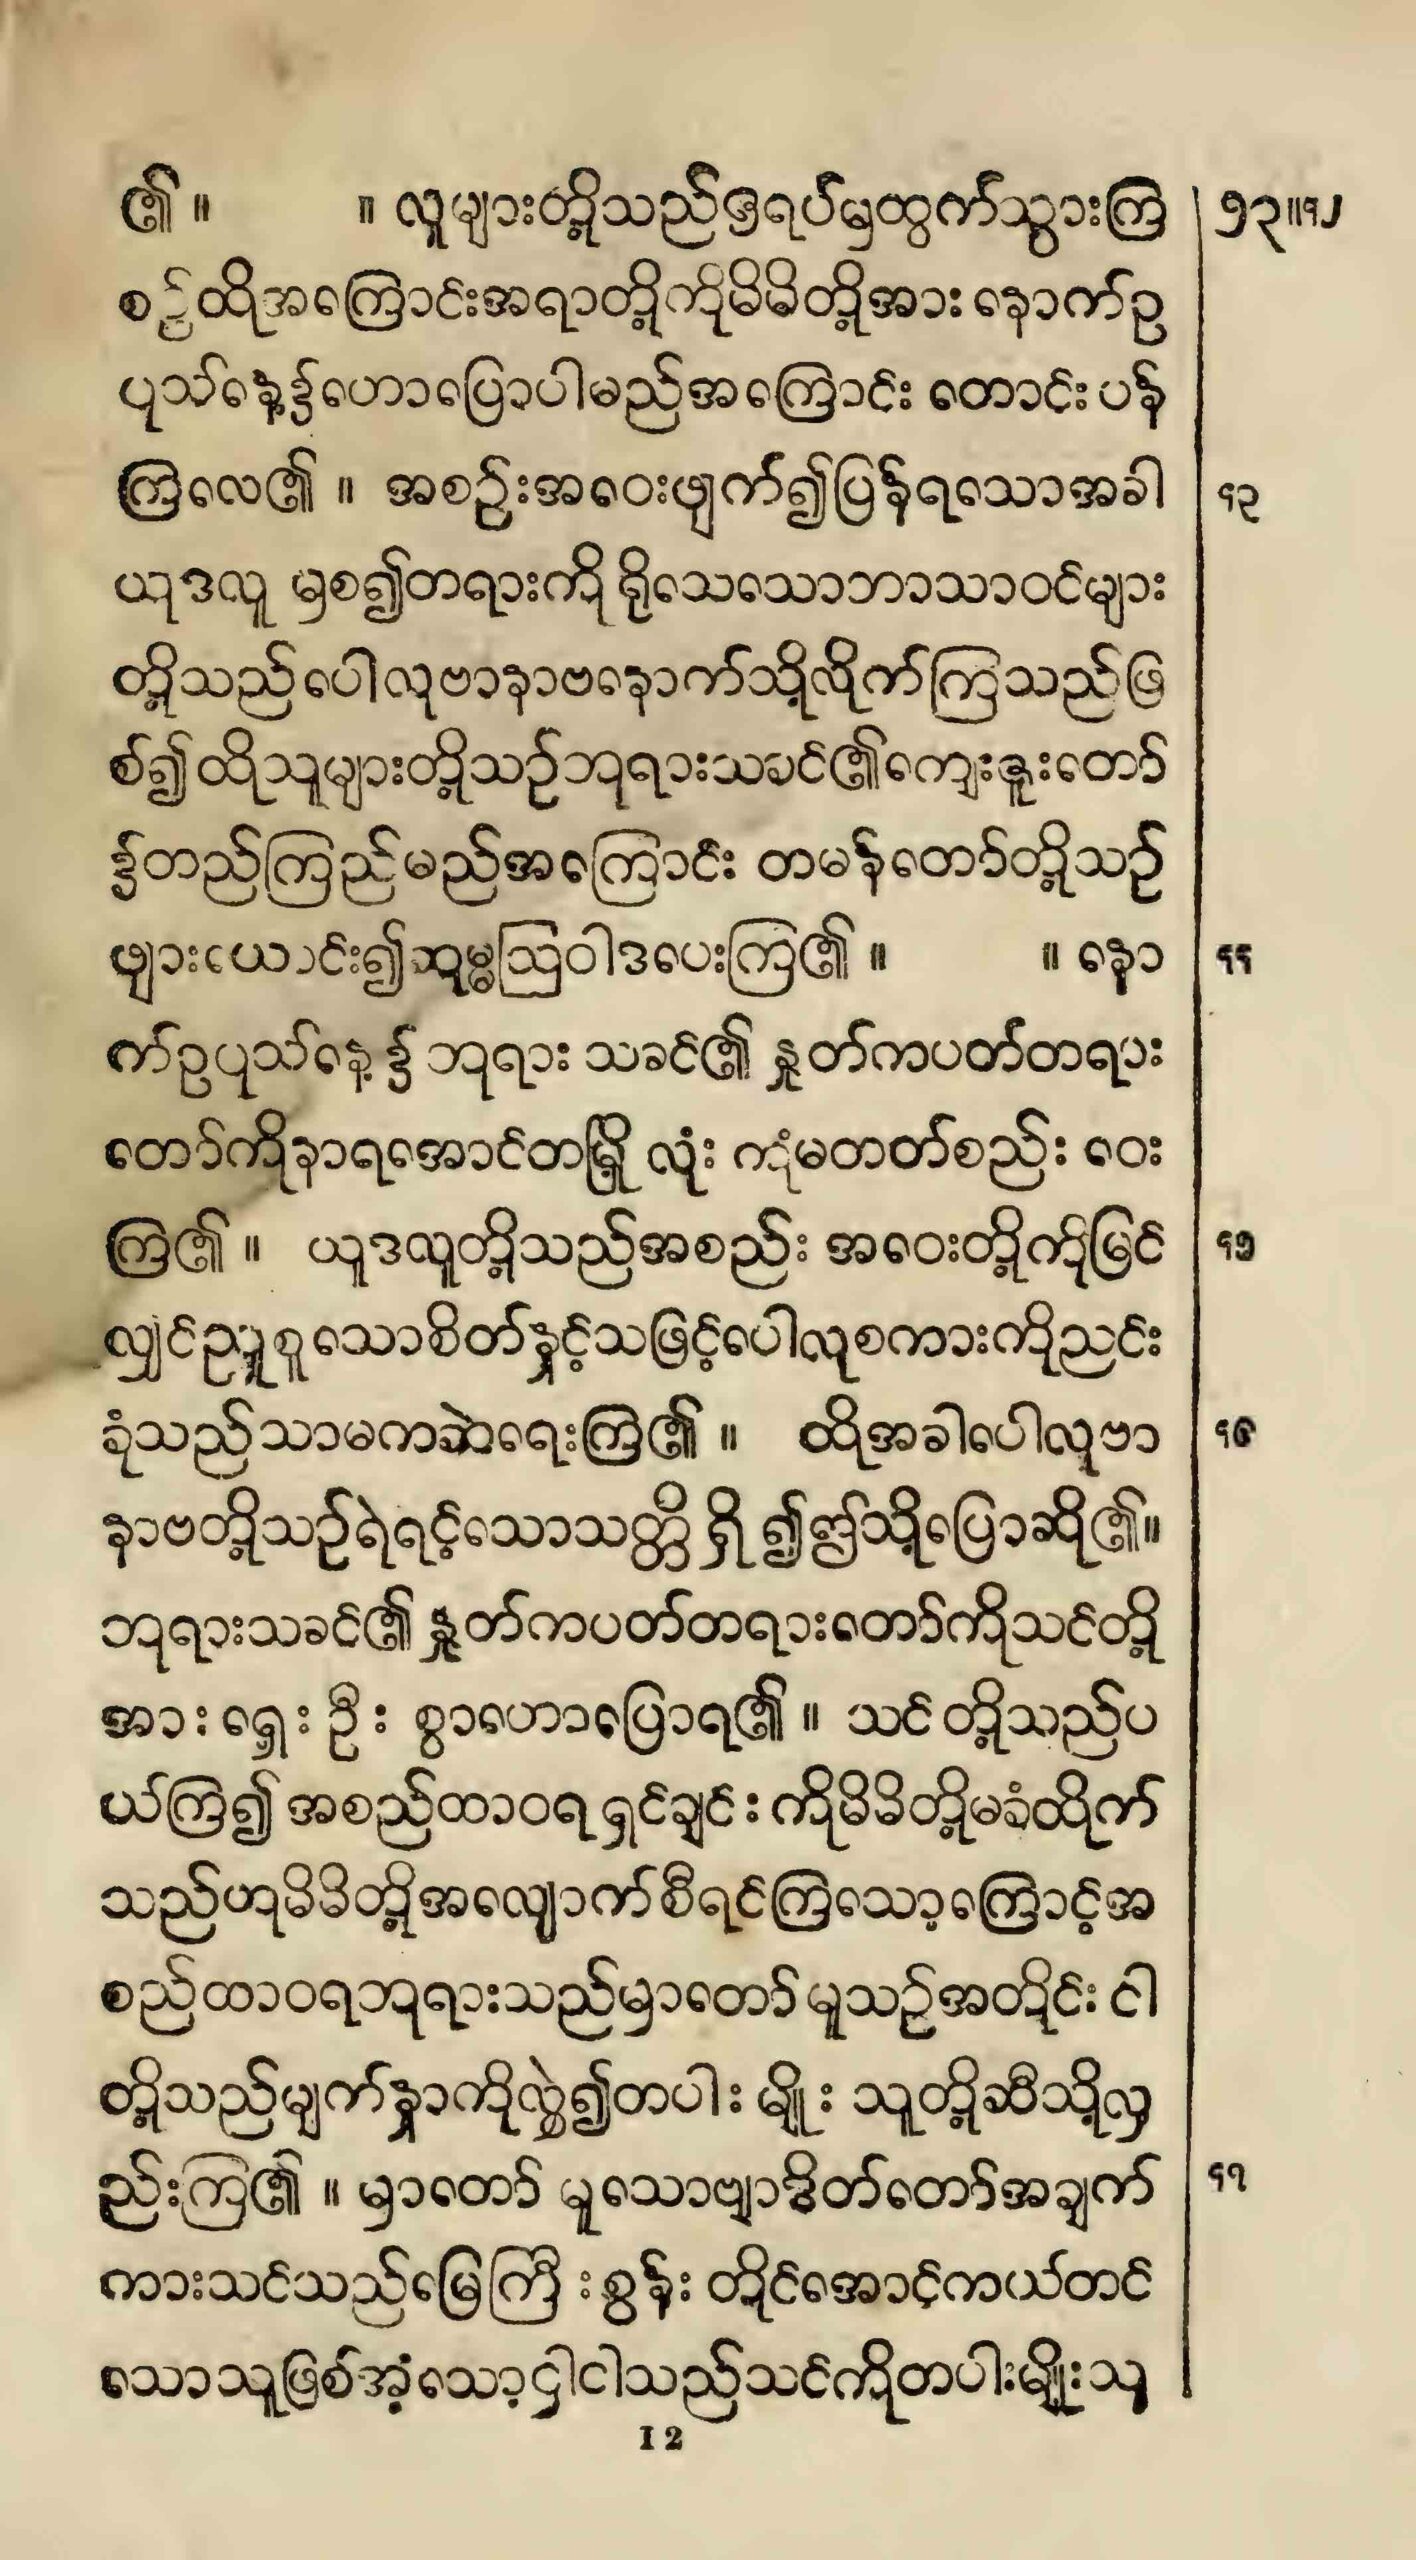 ၏ ။ ။ လူများတို့သည်ဇရပ်မှထွက်သွားကြ ၁၃။၄၂
စဉ်ထိုအကြောင်းအရာတို့ကိုမိမိတို့အား နောက်ဥ
ပုသ်နေ့၌ဟောပြောပါမည်အကြောင်း တောင်းပန်
ကြလေ၏ ။ အစဉ်းအဝေးဖျက်၍ပြန်ရသောအခါ ၄၃
ယုဒလူ မှစ၍တရားကို ရိုသေသောဘာသာဝင်များ
တို့သည်ပေါလုဗာနာဗနောက်သို့လိုက်ကြသည်ဖြ
စ်၍ထိုသူများတို့သဉ်ဘုရားသခင်၏ကျေးဇူးတော်
၌တည်ကြည်မည်အကြောင်း တမန်တော်တို့သဉ်
ဖျားယောင်း၍ဆုမ္မဩဝါဒပေးကြ၏ ။ ။ နော ၄၄
က်ဥပုသ်နေ့၌ ဘုရား သခင်၏ နှုတ်ကပတ်တရား
တော်ကိုနာရအောင်တမြို့ လုံး ကုံမတတ်စည်း ဝေး
ကြ၏ ။ ယူဒလူတို့သည်အစည်း အဝေးတို့ကိုမြင် ၄၅
လျှင်ဥသျှူစူသောစိတ်နှင့်သဖြင့်ပေါလုစကားကိုညင်း
ခုံသည်သာမကဆဲရေးကြ၏ ။ ထိုအခါပေါလုဗာ ၄၆
နာဗတို့သဉ်ရဲရင့်သောသတ္တိ ရှိ ၍ဤသို့ပြောဆို၏။
ဘုရားသခင်၏ နှုတ်ကပတ်တရားတော်ကိုသင်တို့
အား ရှေး ဦး စွာဟောပြောရ၏ ။ သင် တို့သည်ပ
ယ်ကြ၍ အစည်ထာဝရ ရှင်ချင်း ကိုမိမိတို့မခံထိုက်
သည်ဟုမိမိတို့အလျောက်စီရင်ကြသော့ကြောင့်အ
စည်ထာဝရဘုရားသည်မှာတော် မူသဉ်အတိုင်း ငါ
တို့သည်မျက်နှာကိုလွှဲ၍တပါး မျိုး သူတို့ဆီသို့လှ
ည်းကြ၏ ။ မှာတော် မူသောဗျာဒိတ်တော်အချက် ၄၇
ကားသင်သည်မြေကြီး စွန်း တိုင်အောင့်ကယ်တင်
သောသူဖြစ်အံ့သော့ငှါငါသည်သင်ကိုတပါးမျိုးသူ
I 2